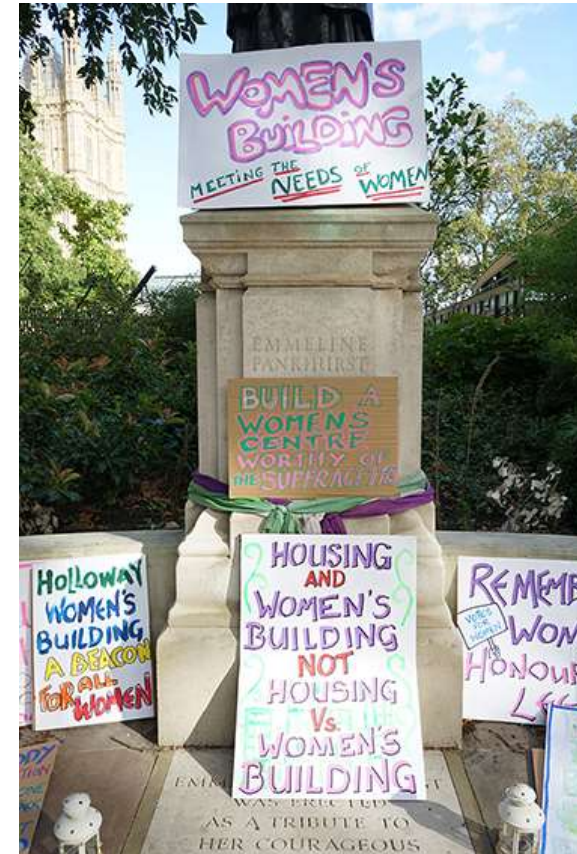 WOMEN'S
BUILDING
MEETING THE NEEDS OF WOMEN
EMMELINE
PANKHURST
BUILD A
WOMENS
CENTRE
WORTHY OF
THE SUFFRAGETTES
HOLLOWAY
WOMEN'S
BUILDING
A BEACON
FOR ALL
WOMEN
HOUSING
AND
WOMEN'S
BUILDING
NOT
HOUSING
Vs.
WOMEN'S
BUILDING
REMEMBE
VOTES
FOR
WOMEN
WOM
HONOUR
LEG
WAS ERECTED
AS A TRIBUTE TO
HER COURAGEOUS